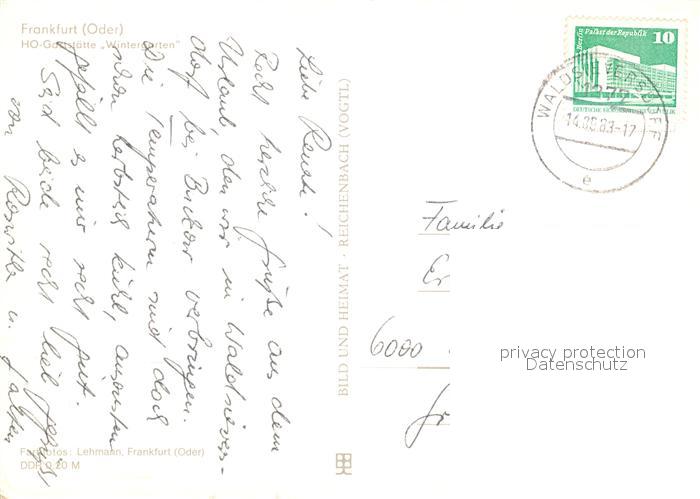 Frankfurt (Oder)
HO-Gaststätte „Wintergarten“
Liebe Renate!
Recht herzliche Grüße aus dem
Urlaub, den wir in Waldsievers-
dorf bei Buckow verbringen.
Die Temperaturen sind doch
schon herbstlich kühl, ansonsten
gefällt es mir recht gut.
Seid beide recht lieb gegrüßt
von Roswitha u.
Farbfotos: Lehmann, Frankfurt (Oder)
DDR 0,20 M
BILD UND HEIMAT · REICHENBACH (VOGTL)
Berlin Palast der Republik 10
DEUTSCHE DEMOKRATISCHE REPUBLIK
WALDSIEVERSDORF
1279
14.09.83-17
e
Familie
Er
6000
privacy protection
Datenschutz